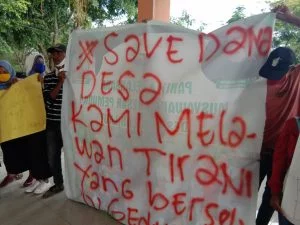 * SAVE DANA
DESA
KAMI MELA-
WAN TIRANI
YANG BERSE